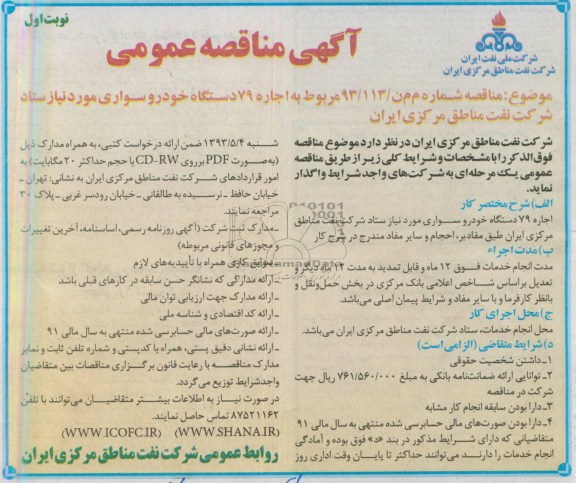 نوبت اول
آگهی مناقصه عمومی
شرکت ملی نفت ایران
شرکت نفت مناطق مرکزی ایران
موضوع: مناقصه شماره م‌م‌ن/۹۳/۱۱۳ مربوط به اجاره ۷۹ دستگاه خودرو سواری مورد نیاز ستاد
شرکت نفت مناطق مرکزی ایران
شرکت نفت مناطق مرکزی ایران در نظر دارد موضوع مناقصه
فوق‌الذکر را با مشخصات و شرایط کلی زیر از طریق مناقصه
عمومی یک مرحله‌ای به شرکت‌های واجد شرایط واگذار
نماید.
الف) شرح مختصر کار
اجاره ۷۹ دستگاه خودرو سواری مورد نیاز ستاد شرکت نفت مناطق
مرکزی ایران طبق مقادیر، احجام و سایر مفاد مندرج در شرح کار
ب) مدت اجراء
مدت انجام خدمات فوق ۱۲ ماه و قابل تمدید به مدت ۱۲ ماه دیگر و
تعدیل براساس شاخص اعلامی بانک مرکزی در بخش حمل‌ونقل و
بانظر کارفرما و با سایر مفاد و شرایط پیمان اصلی می‌باشد.
ج) محل اجرای کار
محل انجام خدمات، ستاد شرکت نفت مناطق مرکزی ایران می‌باشد.
د) شرایط متقاضی (الزامی است)
۱ـ داشتن شخصیت حقوقی
۲ـ توانایی ارائه ضمانت‌نامه بانکی به مبلغ ۷۶۱/۵۶۰/۰۰۰ ریال جهت
شرکت در مناقصه
۳ـ دارا بودن سابقه انجام کار مشابه
۴ـ دارا بودن صورت‌های مالی حسابرسی شده منتهی به سال مالی ۹۱
متقاضیانی که دارای شرایط مذکور در بند «د» فوق بوده و آمادگی
انجام خدمات را دارند می‌توانند حداکثر تا پایان وقت اداری روز
شنبه ۱۳۹۳/۵/۴ ضمن ارائه درخواست کتبی، به همراه مدارک ذیل
(به‌صورت PDF بر روی CD-RW با حجم حداکثر ۲۰ مگابایت) به
امور قراردادهای شرکت نفت مناطق مرکزی ایران به نشانی: تهران ـ
خیابان حافظ ـ نرسیده به طالقانی ـ خیابان رودسر غربی ـ پلاک ۳۰
مراجعه نمایند.
ـ مدارک ثبت شرکت (آگهی روزنامه رسمی، اساسنامه، آخرین تغییرات
و مجوزهای قانونی مربوطه)
ـ سوابق کاری همراه با تأییدیه‌های لازم
ـ ارائه مدارکی که نشانگر حسن سابقه در کارهای قبلی باشد
ـ ارائه مدارک جهت ارزیابی توان مالی
ـ ارائه کد اقتصادی و شناسه ملی
ـ ارائه صورت‌های مالی حسابرسی شده منتهی به سال مالی ۹۱
ـ ارائه نشانی دقیق پستی، همراه با کدپستی و شماره تلفن ثابت و نمابر
مدارک مناقصه با رعایت قانون برگزاری مناقصات بین متقاضیان
واجد شرایط توزیع می‌گردد.
در صورت نیاز به اطلاعات بیشتر متقاضیان می‌توانند با تلفن
۸۷۵۲۱۱۶۲ تماس حاصل نمایند.
(WWW.SHANA.IR) (WWW.ICOFC.IR)
روابط عمومی شرکت نفت مناطق مرکزی ایران